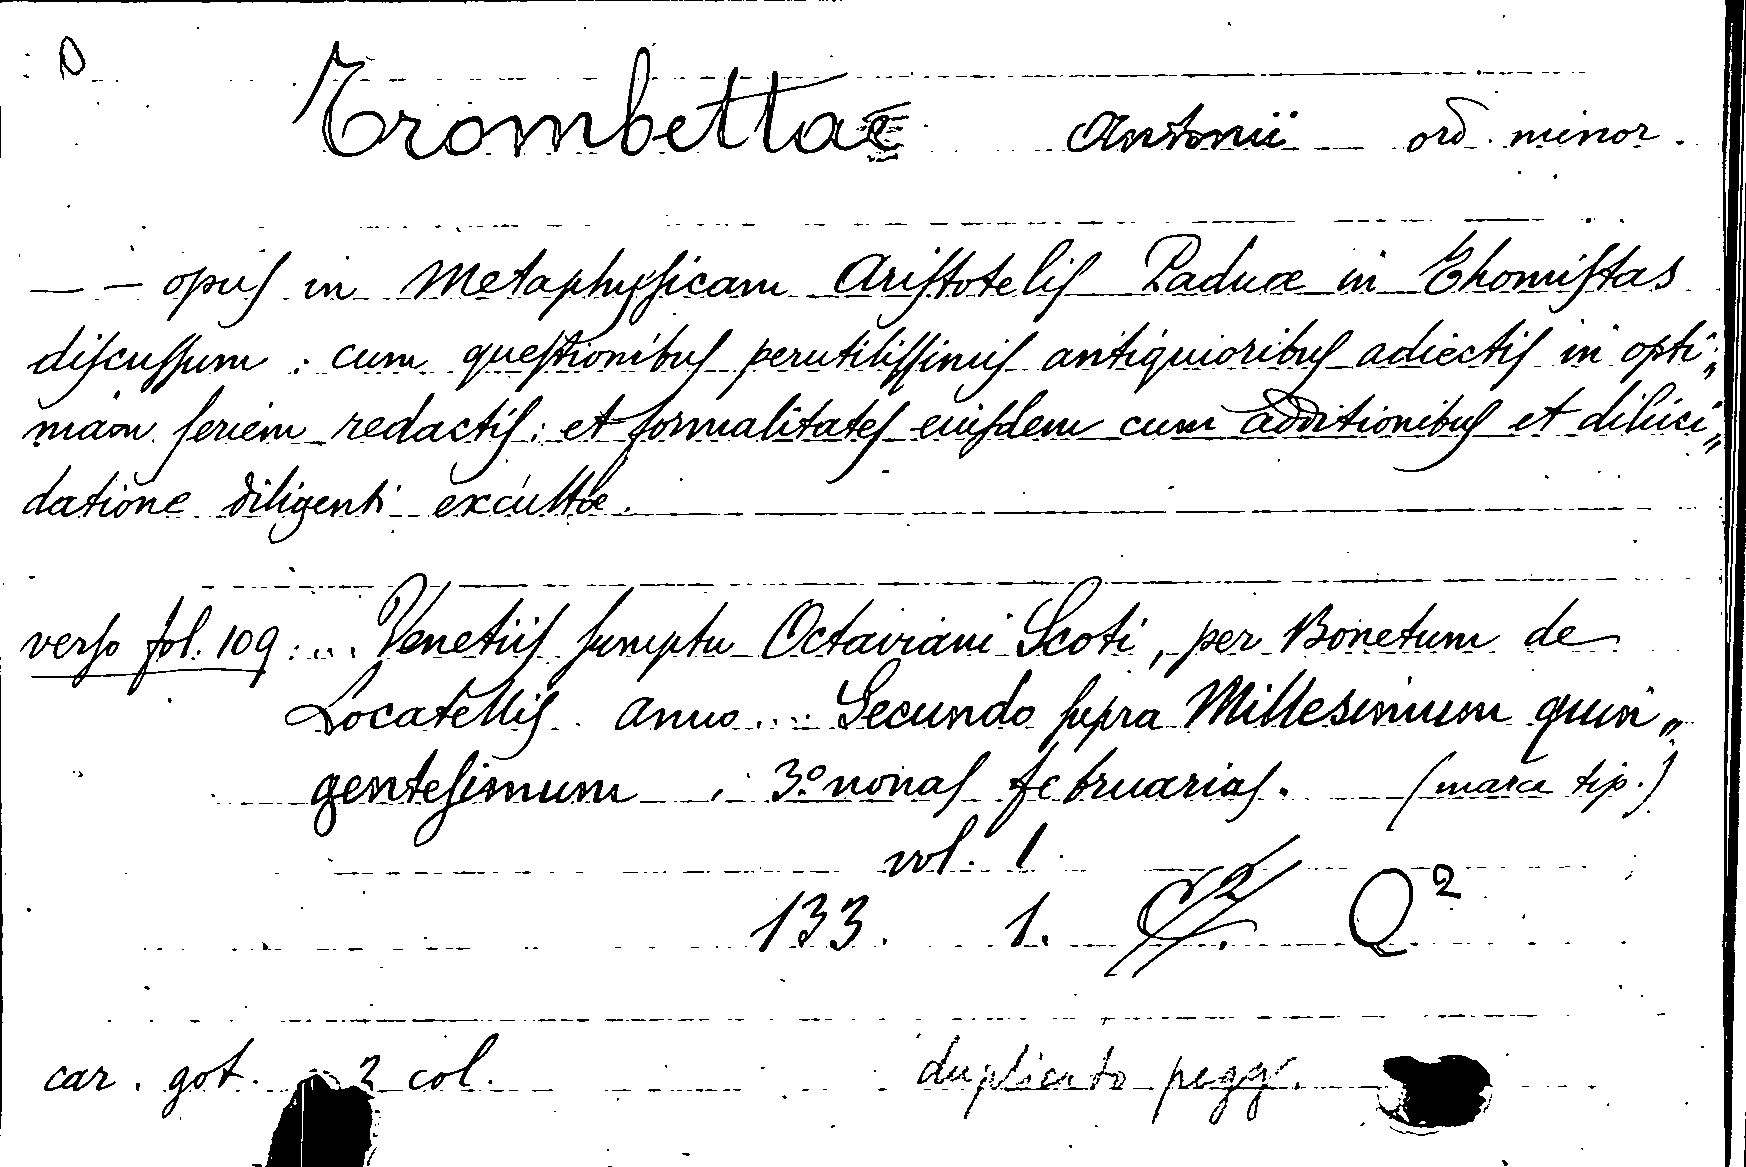 D
Trombettae Antonii ord. minor.
— — opus in Metaphyssicam Aristotelis Paduæ in Thomistas
discussum : cum questionibus perutilissimis antiquioribus adiectis in opti„
mam seriem redactis : et formalitates eiusdem cum additionibus et diluci„
datione diligenti excultæ.
verso fol. 109 : ... Venetiis sumptu Octaviani Scoti, per Bonetum de
Locatellis anno .... Secundo supra Millesimum quin„
gentesimum . 3.º nonas februarias. (marca tip.)
vol. 1
133. 1. Q²
car. got. 2 col. duplicato pegg.